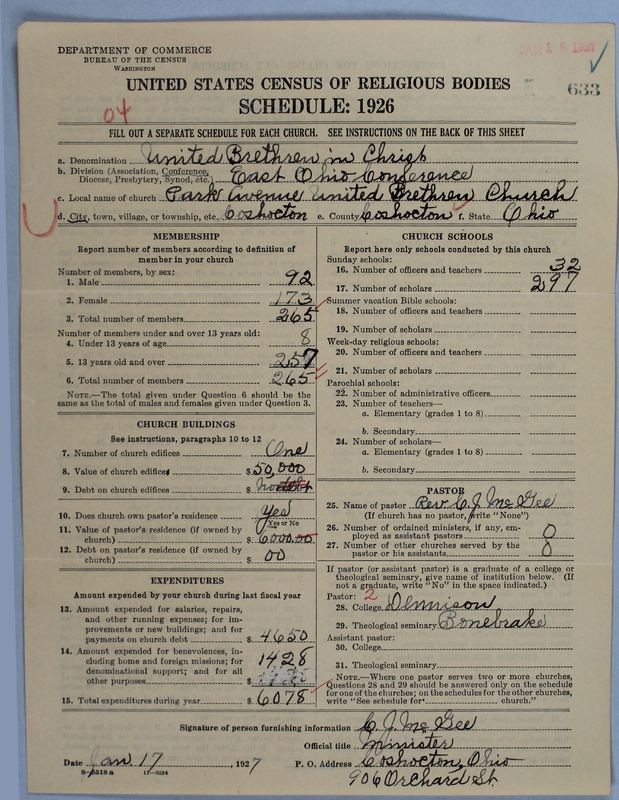 DEPARTMENT OF COMMERCE
BUREAU OF THE CENSUS
WASHINGTON
633
UNITED STATES CENSUS OF RELIGIOUS BODIES
SCHEDULE: 1926
04
FILL OUT A SEPARATE SCHEDULE FOR EACH CHURCH. SEE INSTRUCTIONS ON THE BACK OF THIS SHEET
a. Denomination United Brethren in Christ
b. Division (Association, Conference, Diocese, Presbytery, Synod, etc.) East Ohio Conference
c. Local name of church Park Avenue United Brethren Church
d. City, town, village, or township, etc. Coshocton e. County Coshocton f. State Ohio
MEMBERSHIP
Report number of members according to definition of
member in your church
Number of members, by sex:
1. Male 92
2. Female 173
3. Total number of members 265
Number of members under and over 13 years old:
4. Under 13 years of age 8
5. 13 years old and over 257
6. Total number of members 265
NOTE.—The total given under Question 6 should be
same as the total of males and females given under Question 3.
CHURCH BUILDINGS
See instructions, paragraphs 10 to 12
7. Number of church edifices One
8. Value of church edifices $50,000
9. Debt on church edifices $ no debt
10. Does church own pastor's residence Yes
Yes or No
11. Value of pastor's residence (if owned by
church) $6000.00
12. Debt on pastor's residence (if owned by
church) $ 00
EXPENDITURES
Amount expended by your church during last fiscal year
13. Amount expended for salaries, repairs,
and other running expenses; for im-
provements or new buildings; and for
payments on church debt $4650
14. Amount expended for benevolences, in-
cluding home and foreign missions; for
denominational support; and for all
other purposes $ 1428
15. Total expenditures during year $6078
CHURCH SCHOOLS
Report here only schools conducted by this church
Sunday schools:
16. Number of officers and teachers 32
17. Number of scholars 297
Summer vacation Bible schools:
18. Number of officers and teachers
19. Number of scholars
Week-day religious schools:
20. Number of officers and teachers
21. Number of scholars
Parochial schools:
22. Number of administrative officers
23. Number of teachers—
a. Elementary (grades 1 to 8)
b. Secondary
24. Number of scholars—
a. Elementary (grades 1 to 8)
b. Secondary
PASTOR
25. Name of pastor Rev. C. J. Mc Gee
(If church has no pastor, write "None")
26. Number of ordained ministers, if any, em-
ployed as assistant pastors 0
27. Number of other churches served by the
pastor or his assistants 0
If pastor (or assistant pastor) is a graduate of a college or
theological seminary, give name of institution below. (If
not a graduate, write "No" in the space indicated.)
Pastor: 2
28. College Dennison
29. Theological seminary Bonebrake
Assistant pastor:
30. College
31. Theological seminary
NOTE.—Where one pastor serves two or more churches,
Questions 28 and 29 should be answered only on the schedule
for one of the churches; on the schedules for the other churches,
write "See schedule for church."
Signature of person furnishing information C. J. Mc Gee
Official title Minister
Date Jan. 17, 1927 P. O. Address Coshocton, Ohio
906 Orchard St.
8-5318 a